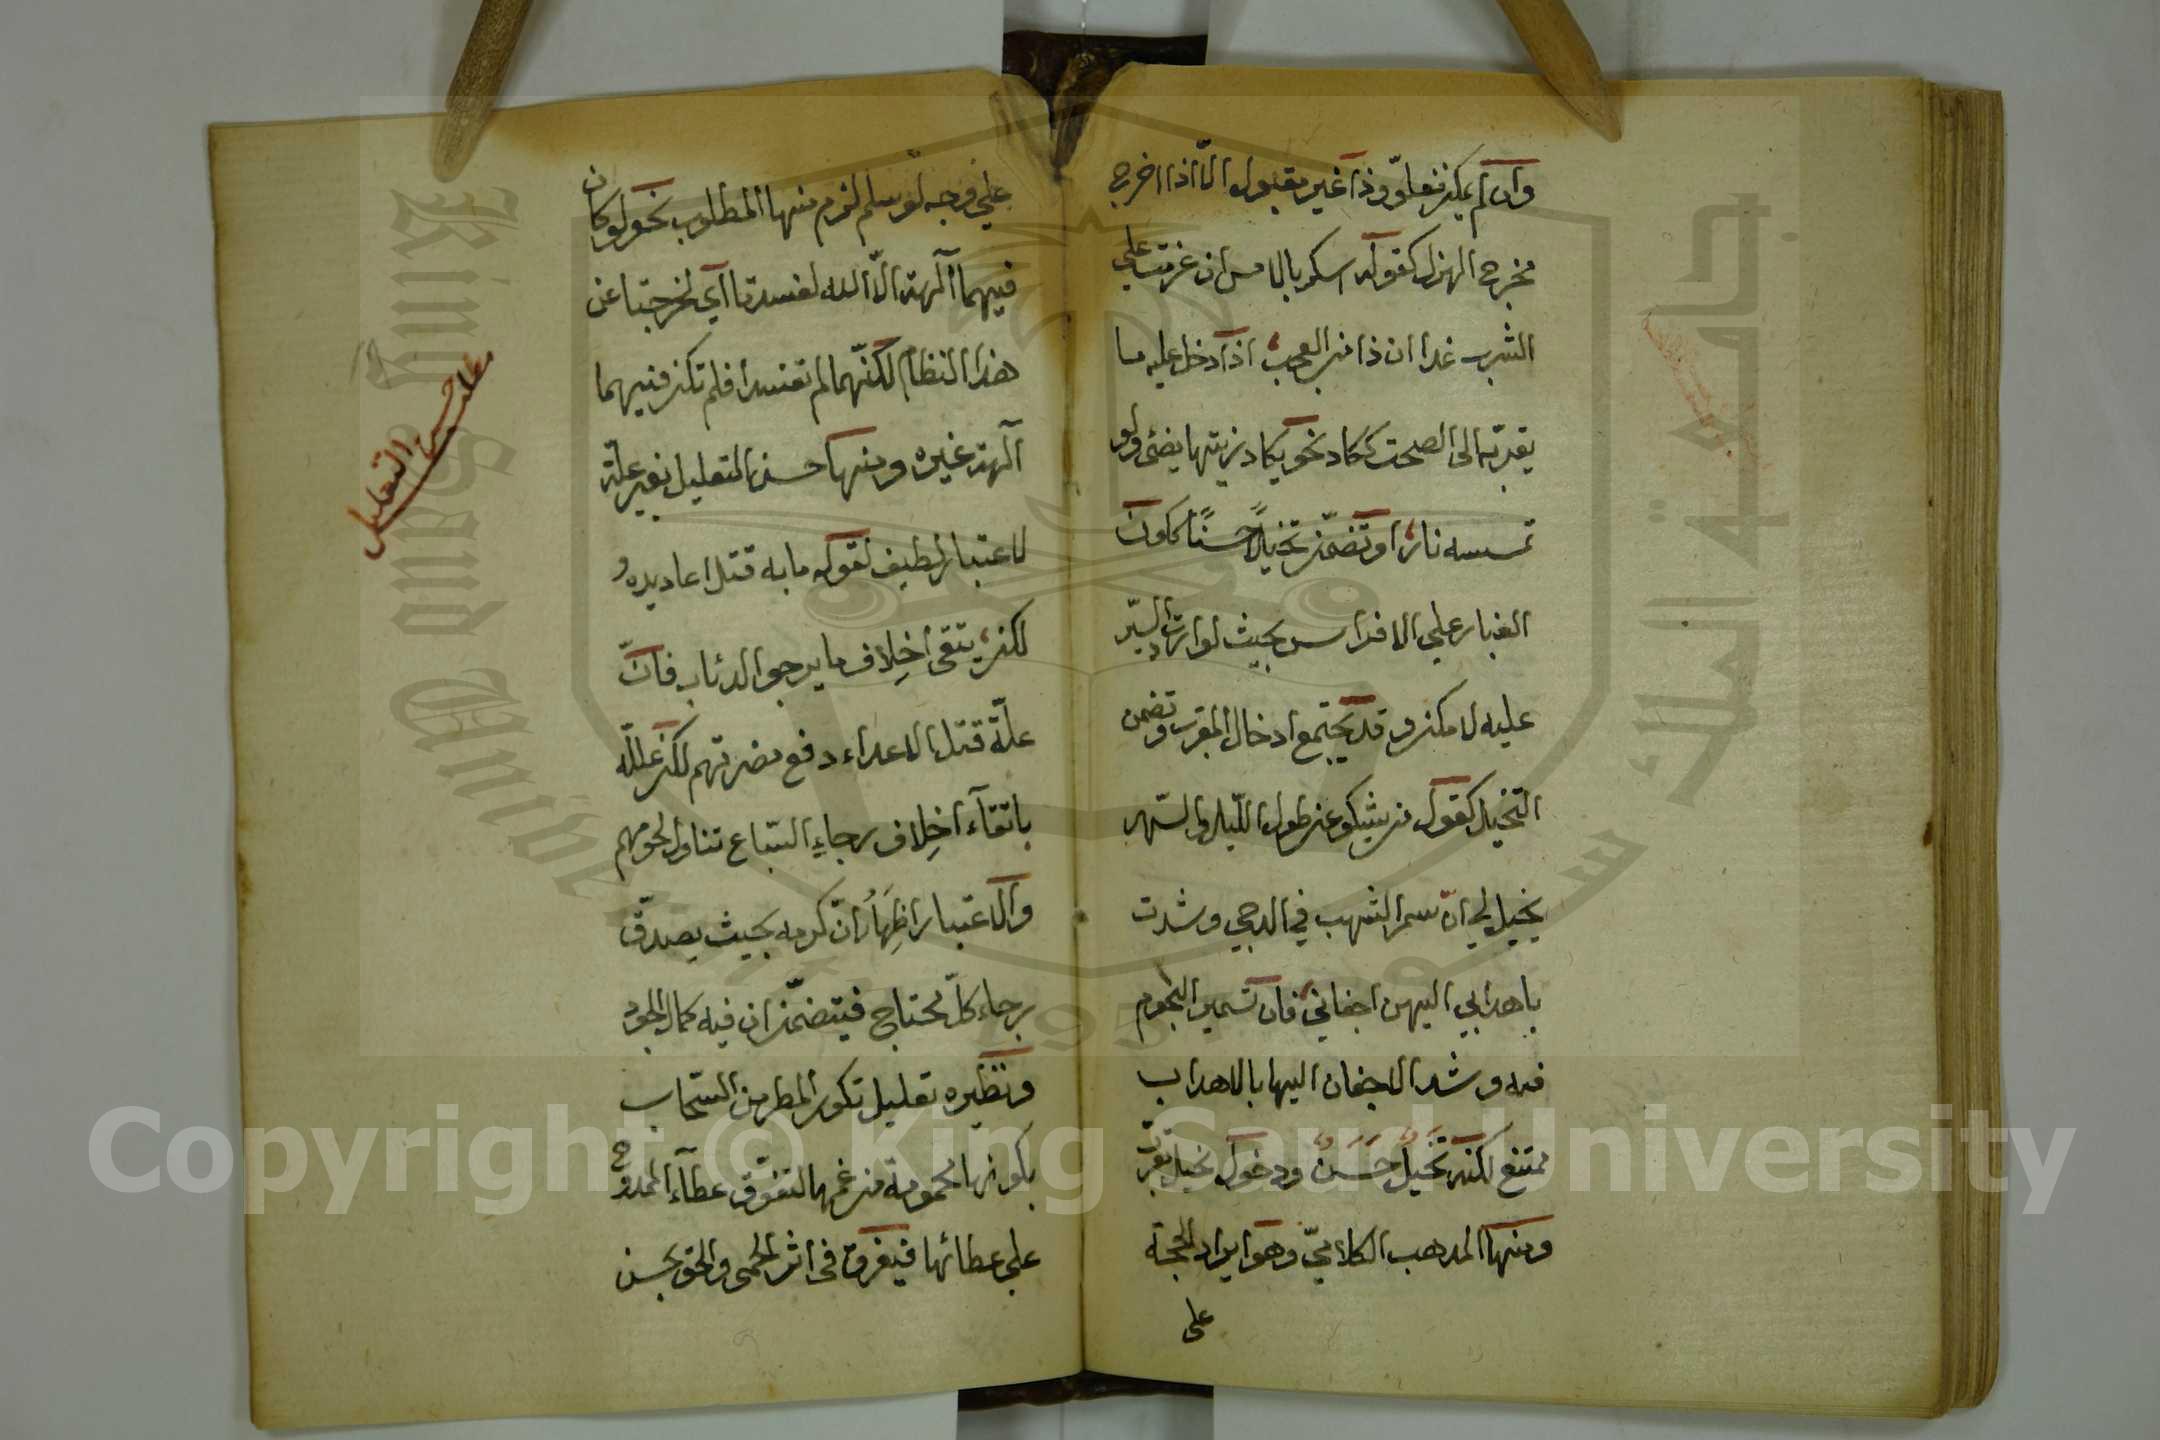 وان لم يمكن فغلوّ وذا غير مقبول الّا اذا اخرج
مخرج الهزل كقوله اسكر بالامس ان عزمت على
الشرب غدا ان ذا من العجب اذا دخل عليه ما
يقربه الى الصحت ككاد نحو يكاد زيتها يضئ ولو
تمسسه نار او تضمّن تخيلًا حسنًا كاون
الغبار على الافراس بحيث لو ارادت السّير
عليه لامكن وقد يجتمع ادخال المقرب وتضمن
التخيل كقول من يشكو عن طول اللّيل والسّهر
يخيل لي ان سمر الشهب في الدجى وشدت
باهدابي اليهن اجفاني فان تسمير النجوم
فيه وشد الاجفان اليها بالاهداب
ممتنع لكنه تخيل حسن ودخول يخيل يقربه
ومنها المذهب الكلاميّ وهو ايراد الحجة
على
على وجه لو سلم لزم منها المطلوب نحو لو كان
فيهما آلهة الّا الله لفسدتا اي لخرجتا عن
هذا النظام لكنّهما لم تفسدا فلم تكن فيهما
آلهة غيره ومنها حسن التعليل بغير علّة
لاعتبار لطيف كقوله ما به قتل اعاديه و
لكن يتقي اخلاف ما يرجو الذئاب فانّ
علّة قتل الاعداء دفع مضرتهم لكن علله
باتقآء اخلاف رجاء السّباع تناول لحومهم
والاعتبار اظهار انّ كرمه بحيث يصدّق
رجاء كلّ محتاج فيتضمّن ان فيه كمال الجود
ونظيره تعليل تكون المطر من السّحاب
بكونها محمومة من غمها لتفوّق عطآء الممدوح
على عطائها فيغرق في اثر الحمى والحق بحسن
حسن التعليل
Copyright © King Saud University
King Saud University
جامعة الملك سعود
1957